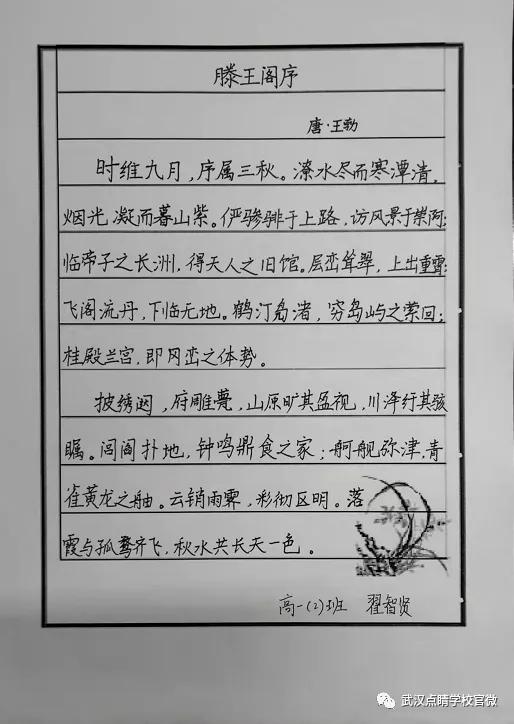 滕王阁序
唐·王勃
时维九月，序属三秋。潦水尽而寒潭清，
烟光凝而暮山紫。俨骖騑于上路，访风景于崇阿；
临帝子之长洲，得天人之旧馆。层峦耸翠，上出重霄；
飞阁流丹，下临无地。鹤汀凫渚，穷岛屿之萦回；
桂殿兰宫，即冈峦之体势。
披绣闼，府雕甍，山原旷其盈视，川泽纡其骇
瞩。闾阎扑地，钟鸣鼎食之家；舸舰弥津，青
雀黄龙之舳。云销雨霁，彩彻区明。落
霞与孤鹜齐飞，秋水共长天一色。
高一(2)班 翟智贤
武汉点睛学校官微